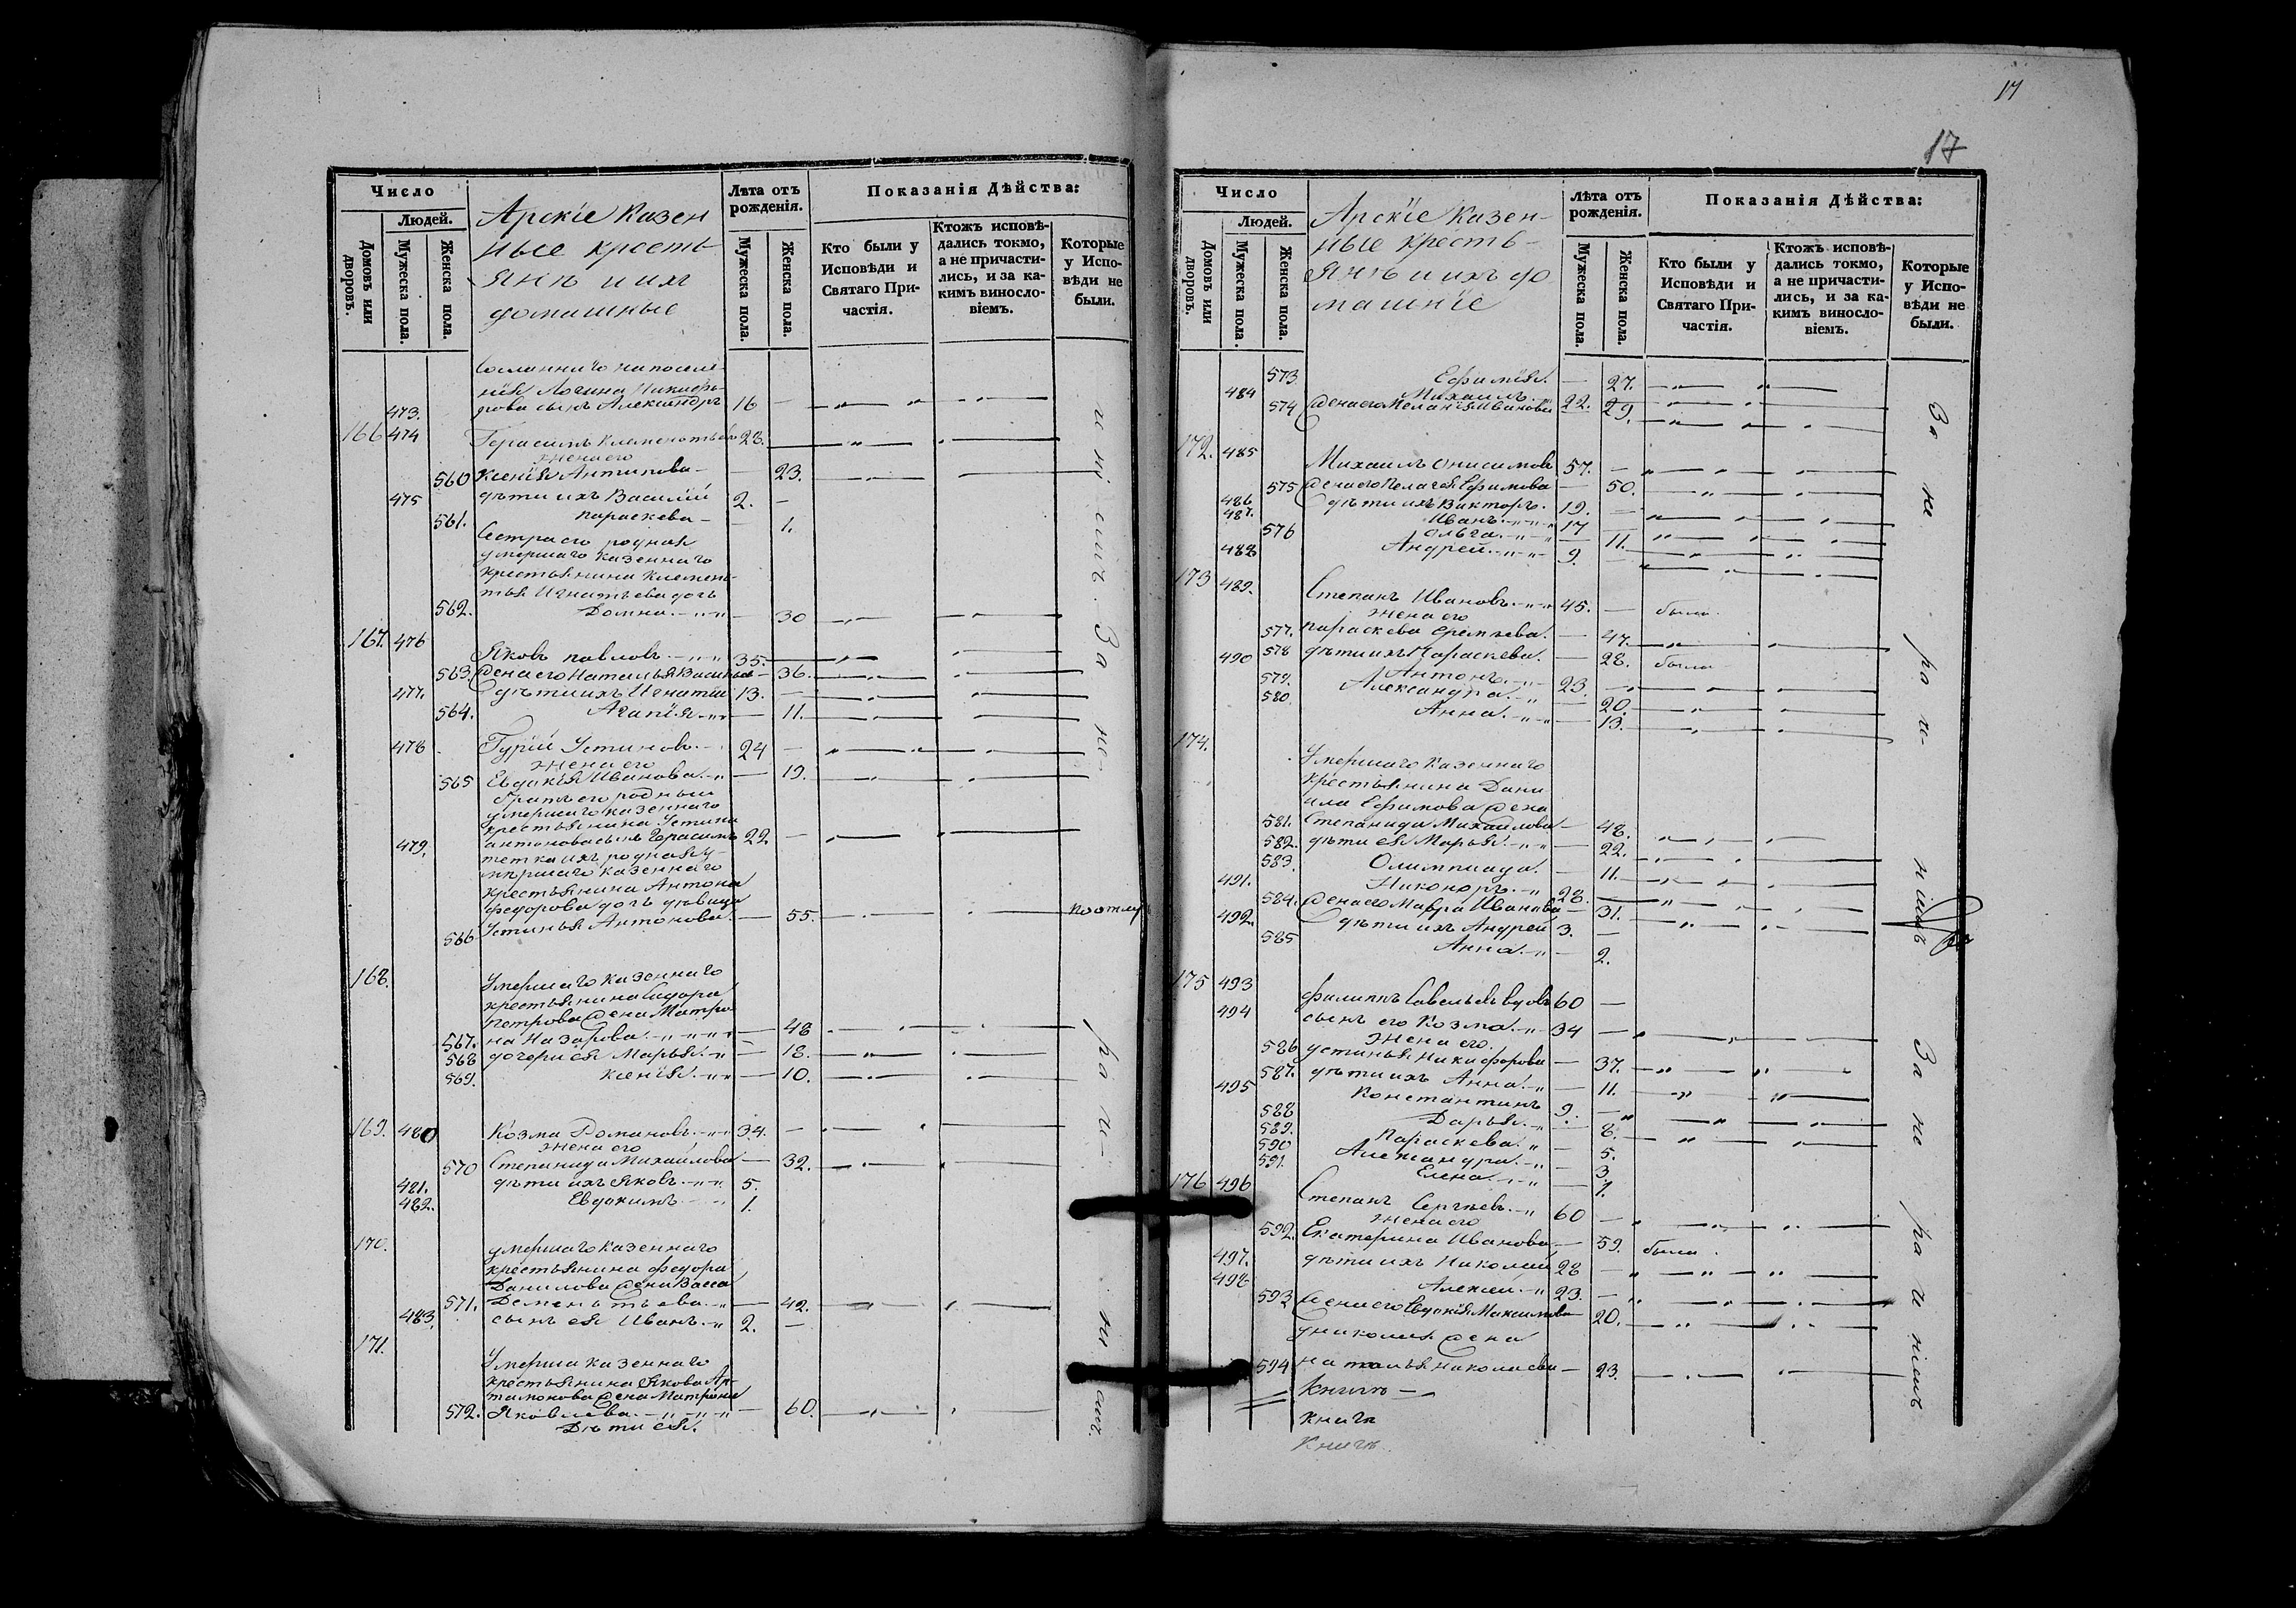 Число
Людей.
Домовъ или дворовъ.
Мужеска пола.
Женска пола.
Арскіе Казен
ные кресть
янѣ и ихъ
домашные
Лѣта отъ рожденія.
Мужеска пола.
Женска пола.
Показанія Дѣйства:
Кто были у Исповѣди и Святаго Причастія.
Ктожъ исповѣдались токмо, а не причастились, и за какимъ винословіемъ.
Которые у Исповѣди не были.
Сосланнаго на поселе
нія Логина Никифо-
473. рова сынъ Александръ 16 —
166 474 Герасимъ Клементьевъ 23.
жена его
560 Ксенія Антипова — 23.
475 дѣти ихъ Василій 2. —
561. Параскева — 1.
Сестра его родная
умершаго казеннаго
крестьянина Клемен-
тья Игнатьева дочь
562. Домна — 30
167. 476 Яковъ Павловъ 35.
563. жена его Наталья Васильева — 36.
477. дѣти ихъ Игнатій 13. —
564. Агапія — 11.
478 Гурій Устиновъ 24 —
жена его
565 Евдокія Иванова — 19.
братъ его родный
умершаго казеннаго
крестьянина Устина
479. Антонова сынъ Герасимъ 22 —
тетка ихъ родная у-
мершаго казеннаго
крестьянина Антона
Федорова дочь дѣвица
566 Устинья Антонова — 55.
168. Умершаго казеннаго
крестьянина Сидора
Петрова жена Матро
567. на Назарова — 48
568 дочери ея Марья — 18.
569. Ксенія — 10.
169. 480 Козма Романовъ 34. —
жена его
570 Степанида Михайлова — 32.
481. дѣти ихъ Яковъ 5.
482. Евдокимъ 1.
170. умершаго казеннаго
крестьянина Федора
Данилова жена Васса
571. Дементьева — 42.
483. сынъ ея Иванъ 2. —
171. Умерша казеннаго
крестьянина Якова Ар-
тамонова жена Матрона
572. Яковлева — 60.
Дѣти ея.
За не-
ра че-
17
17
Число
Людей.
Домовъ или дворовъ.
Мужеска пола.
Женска пола.
Арскіе Казен-
ные кресть-
янѣ и ихъ до
машніе
Лѣта отъ рожденія.
Мужеска пола.
Женска пола.
Показанія Дѣйства:
Кто были у Исповѣди и Святаго Причастія.
Ктожъ исповѣдались токмо, а не причастились, и за какимъ винословіемъ.
Которые у Исповѣди не были.
573. Ефимія — 27.
484 Михаилъ 22.
574 жена его Меланія Иванова — 29.
172. 485 Михаилъ Онисимовъ 57. —
575 жена его Пелагея Ефимова — 50.
486 дѣти ихъ Викторъ 19. —
487. Иванъ 17 —
576 Ольга — 11.
488 Андрей 9. —
173 489. Степанъ Ивановъ 45. — были
жена его
577. Параскева Еремѣева — 47.
578 дѣти ихъ Параскева — 28. была
490 Антонъ 23. —
579. Александра — 20.
580. Анна — 13.
174. Умершаго казеннаго
крестьянина Дани
ила Ефимова жена
581. Степанида Михайлова — 48.
582. дѣти ея Марья — 22.
583. Олимпиада — 11.
491. Никоноръ 28. —
584. жена его Мавра Иванова — 31.
492. дѣти ихъ Андрей 3. —
585 Анна — 2.
175 493 Филиппъ Савельевъ вдовъ 60 —
494 сынъ его Козма 34 —
жена его
586 Устинья Никифорова — 37.
587. дѣти ихъ Анна — 11.
495 Константинъ 9. —
588 Дарья — 8.
589. Параскева — 5.
590 Александра — 3.
591. Елена — 1.
176 496 Степанъ Сергѣевъ 60 —
жена его
592. Екатерина Иванова — 59. была
497. дѣти ихъ Николай 28 —
498 Алексѣй 23. —
593 жена его Евдокія Максимова — 20.
у Николая жена
594 Наталья Николаева — 23.
Книги
книги
За не
ра че-
ніемъ
За не
ра че
ніемъ